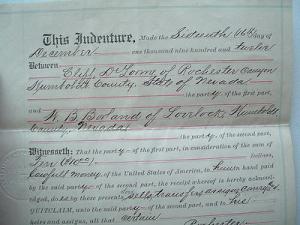 This Indenture, Made the Sixteenth (16th) day of
December one thousand nine hundred and twelve
Between Cliff De Long of Rochester Canyon
Humboldt County, State of Nevada
the party of the first part,
and H B Borland of Lovelock, Humboldt
County, Nevada
the party of the second part,
Witnesseth: That the party of the first part, in consideration of the sum of
Ten Dollars,
lawful money of the United States of America, to him in hand
paid by the said party of the second part, the receipt whereof is hereby acknowl-
edged, does by these presents sells, transfers, assigns
QUITCLAIM, unto the said party of the second part, and to his
heirs and assigns, all that certain
Rochester